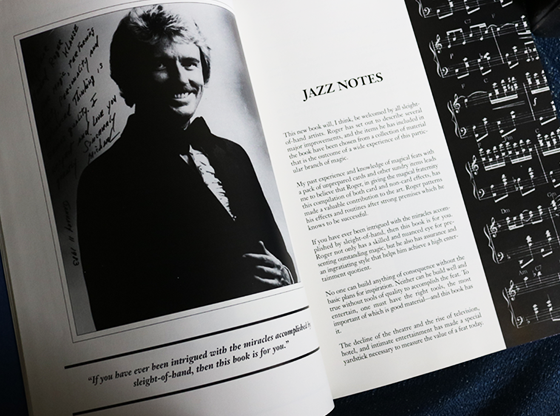 Thinking is
love you
"If you have ever been intrigued with the miracles accomplished by
sleight-of-hand, then this book is for you."
JAZZ NOTES
This new book will, I think, be welcomed by all sleight-
of-hand artists. Roger has set out to describe several
major improvements, and the items he has included in
the book have been chosen from a collection of material
that is the outcome of a wide experience of this partic-
ular branch of magic.
My past experience and knowledge of magical feats with
a pack of unprepared cards and other sundry items leads
me to believe that Roger, in giving the magical fraternity
this compilation of both card and non-card effects, has
made a valuable contribution to the art. Roger patterns
his effects and routines after strong premises which he
knows to be successful.
If you have ever been intrigued with the miracles accom-
plished by sleight-of-hand, then this book is for you.
Roger not only has a skilled and nuanced eye for pre-
senting outstanding magic, but he also has assurance and
an ingratiating style that helps him achieve a high enter-
tainment quotient.
No one can build anything of consequence without the
basic plans for inspiration. Neither can he build well and
true without tools of quality to accomplish the feat. To
entertain, one must have the right tools, the most
important of which is good material—and this book has
it.
The decline of the theatre and the rise of television,
hotel, and intimate entertainment has made a special
yardstick necessary to measure the value of a feat today.